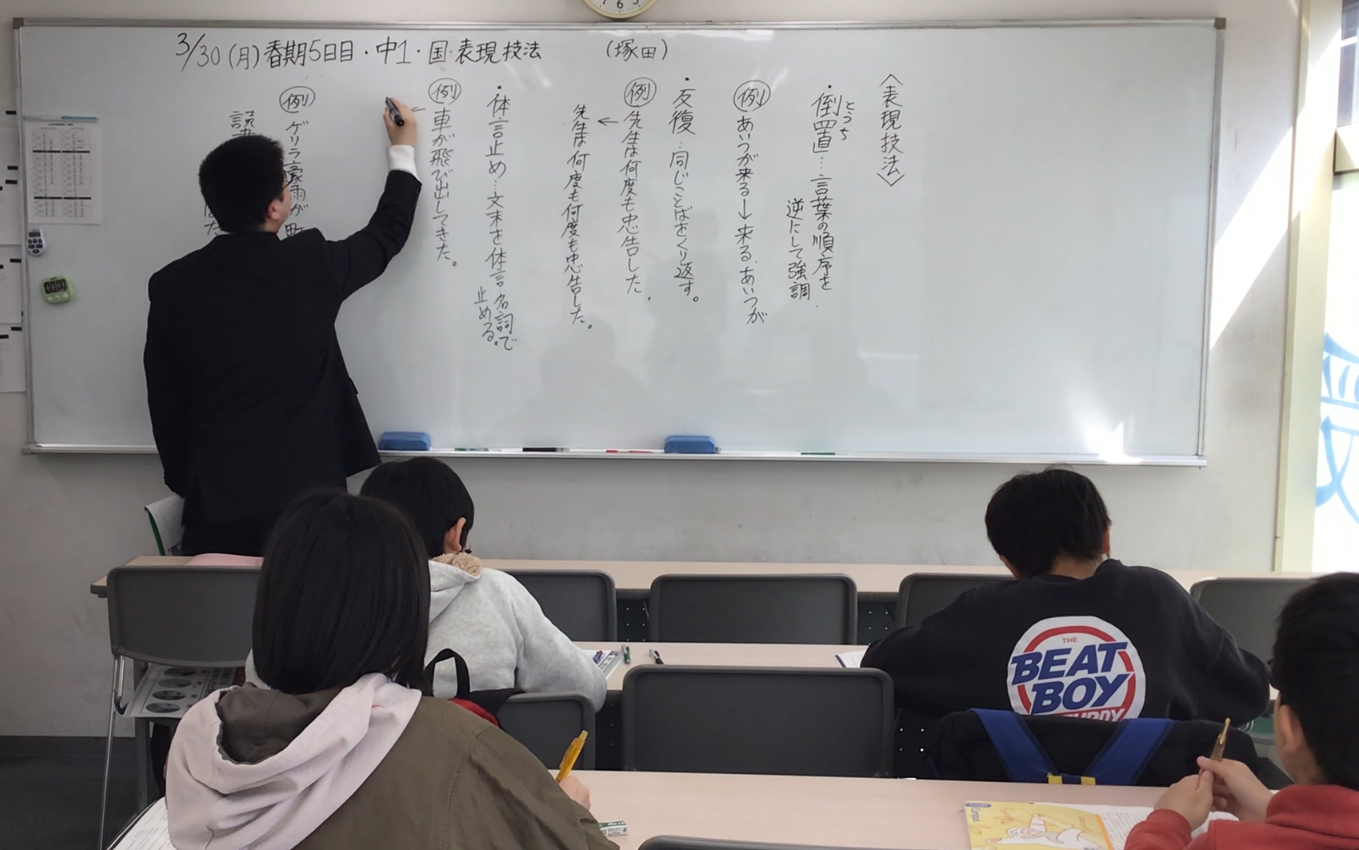 3/30(月)春期5日目・中1・国・表現技法 (塚田)
〈表現技法〉
・倒置…言葉の順序を
とうち
逆にして強調
例 あいつが来る→来る、あいつが
・反復…同じことばをくり返す。
例 先生は何度も忠告した。
← 先生は何度も何度も忠告した。
・体言止め…文末を体言 名詞で
止める。
例 車が飛び出してきた。
←
例 ゲリラ豪雨が町
THE
BEAT
BOY
Campus